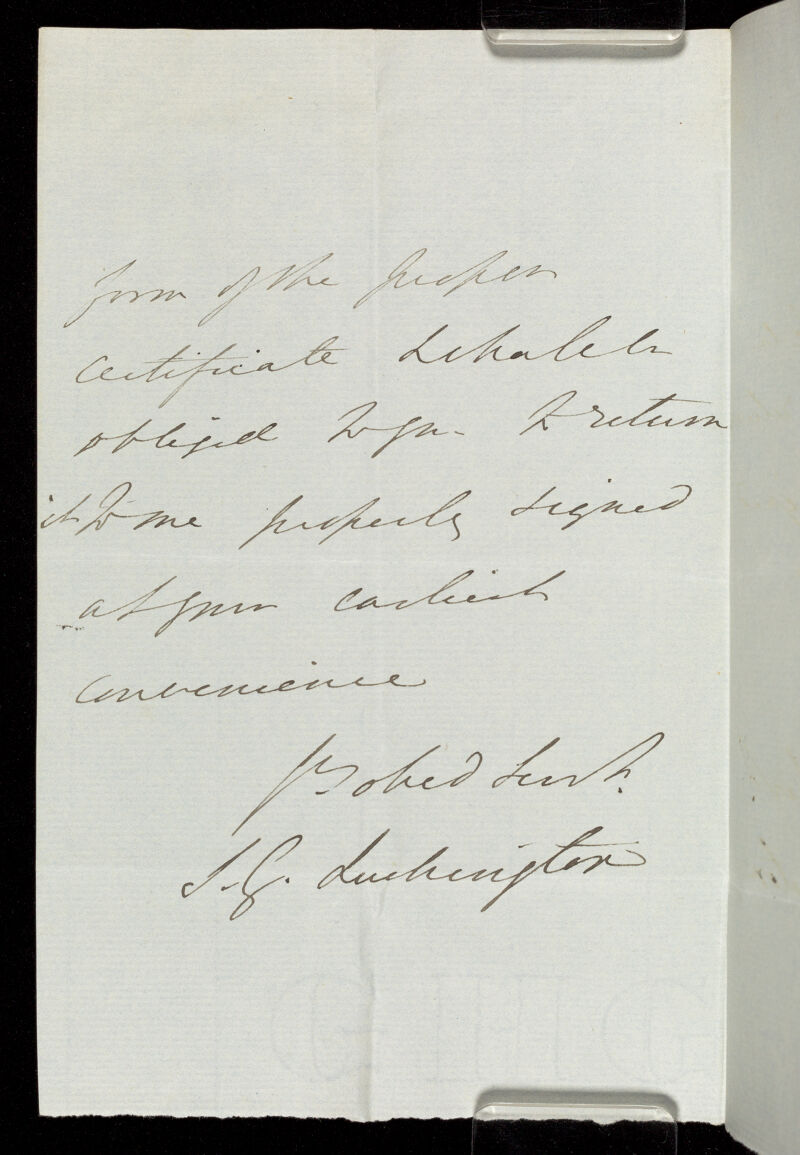 form of the proper
certificate & shall be
obliged to you to return
it to me properly signed
at your earliest
convenience
Yr obed Servt.
S. G. Lushington